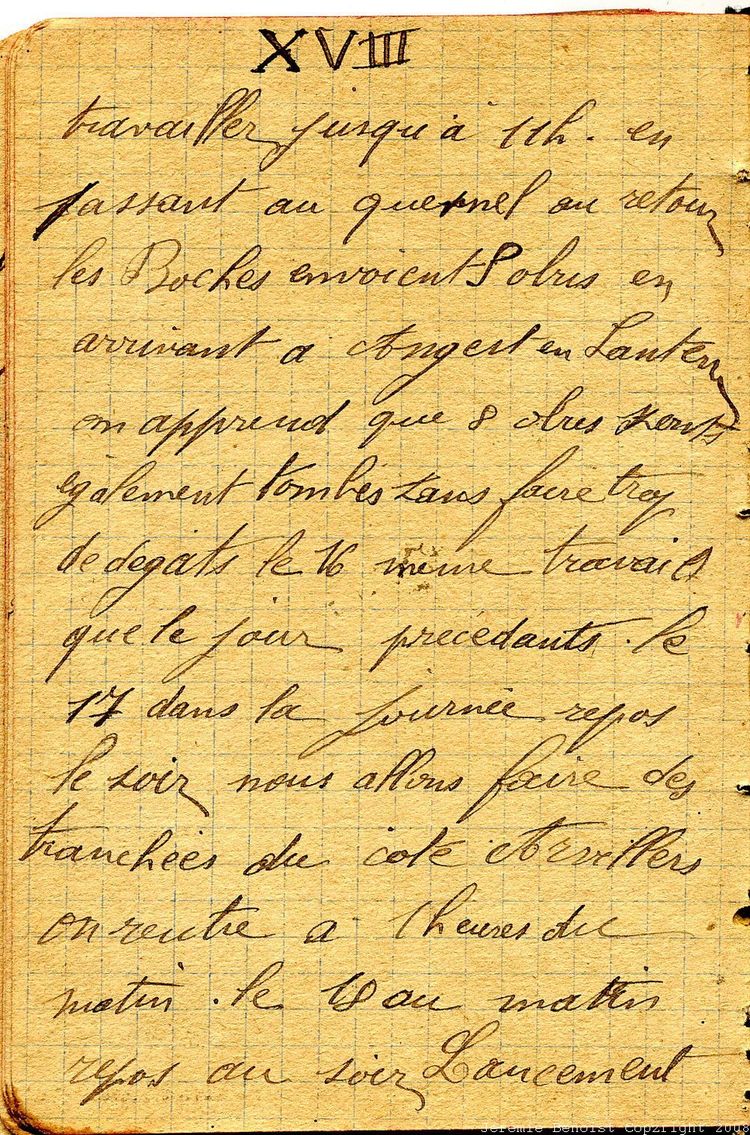 XVIII
travailler jusqu'à 11h. en
passant au quesnel au retour
les Boches envoient 8 obus en
arrivant a Angest en Santerr
on apprend que 8 obus sonts
également tombés sans faire trop
de degats le 16 même travail
que le jour précédants. le
17 dans la journée repos
le soir nous allons faire des
tranchées du coté Arvillers
on rentre a 1 heures du
matin. le 18 au mattin
repos au soir Lancement
Jeremie Benoist Copyright 2008